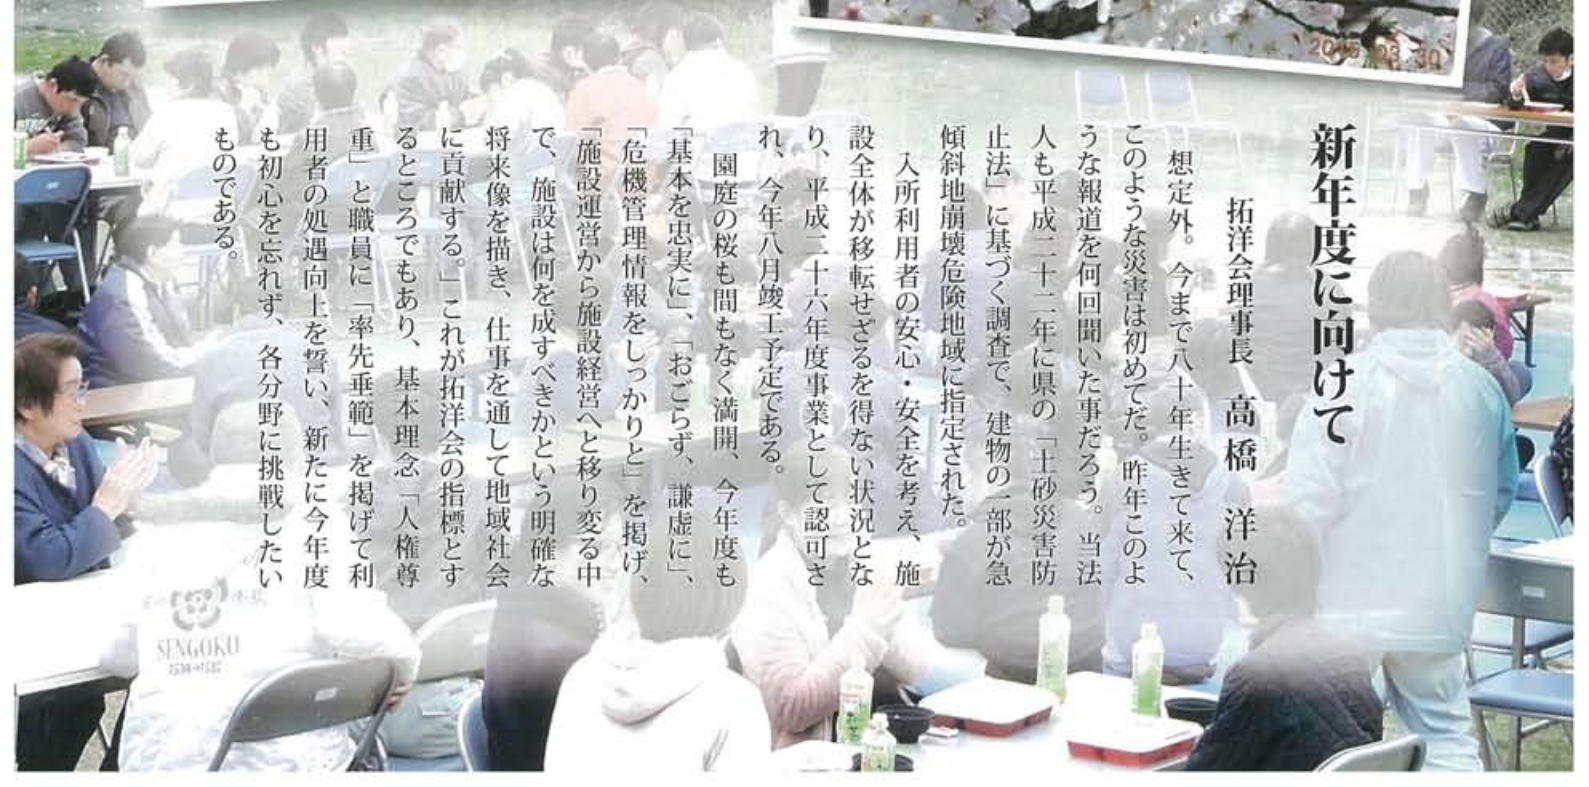 新年度に向けて
拓洋会理事長 高橋 洋治
想定外。今まで八十年生きて来て、
このような災害は初めてだ。昨年このよ
うな報道を何回聞いた事だろう。当法
人も平成二十二年に県の「土砂災害防
止法」に基づく調査で、建物の一部が急
傾斜地崩壊危険地域に指定された。
入所利用者の安心・安全を考え、施
設全体が移転せざるを得ない状況とな
り、平成二十六年度事業として認可さ
れ、今年八月竣工予定である。
園庭の桜も間もなく満開、今年度も
「基本を忠実に」、「おごらず、謙虚に」、
「危機管理情報をしっかりと」を掲げ、
「施設運営から施設経営へと移り変る中
で、施設は何を成すべきかという明確な
将来像を描き、仕事を通して地域社会
に貢献する。」これが拓洋会の指標とす
るところでもあり、基本理念「人権尊
重」と職員に「率先垂範」を掲げて利
用者の処遇向上を誓い、新たに今年度
も初心を忘れず、各分野に挑戦したい
ものである。
SENGOKU